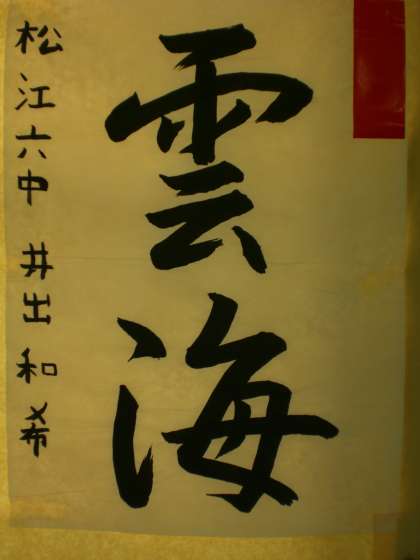 雲海
松江六中 井出和希